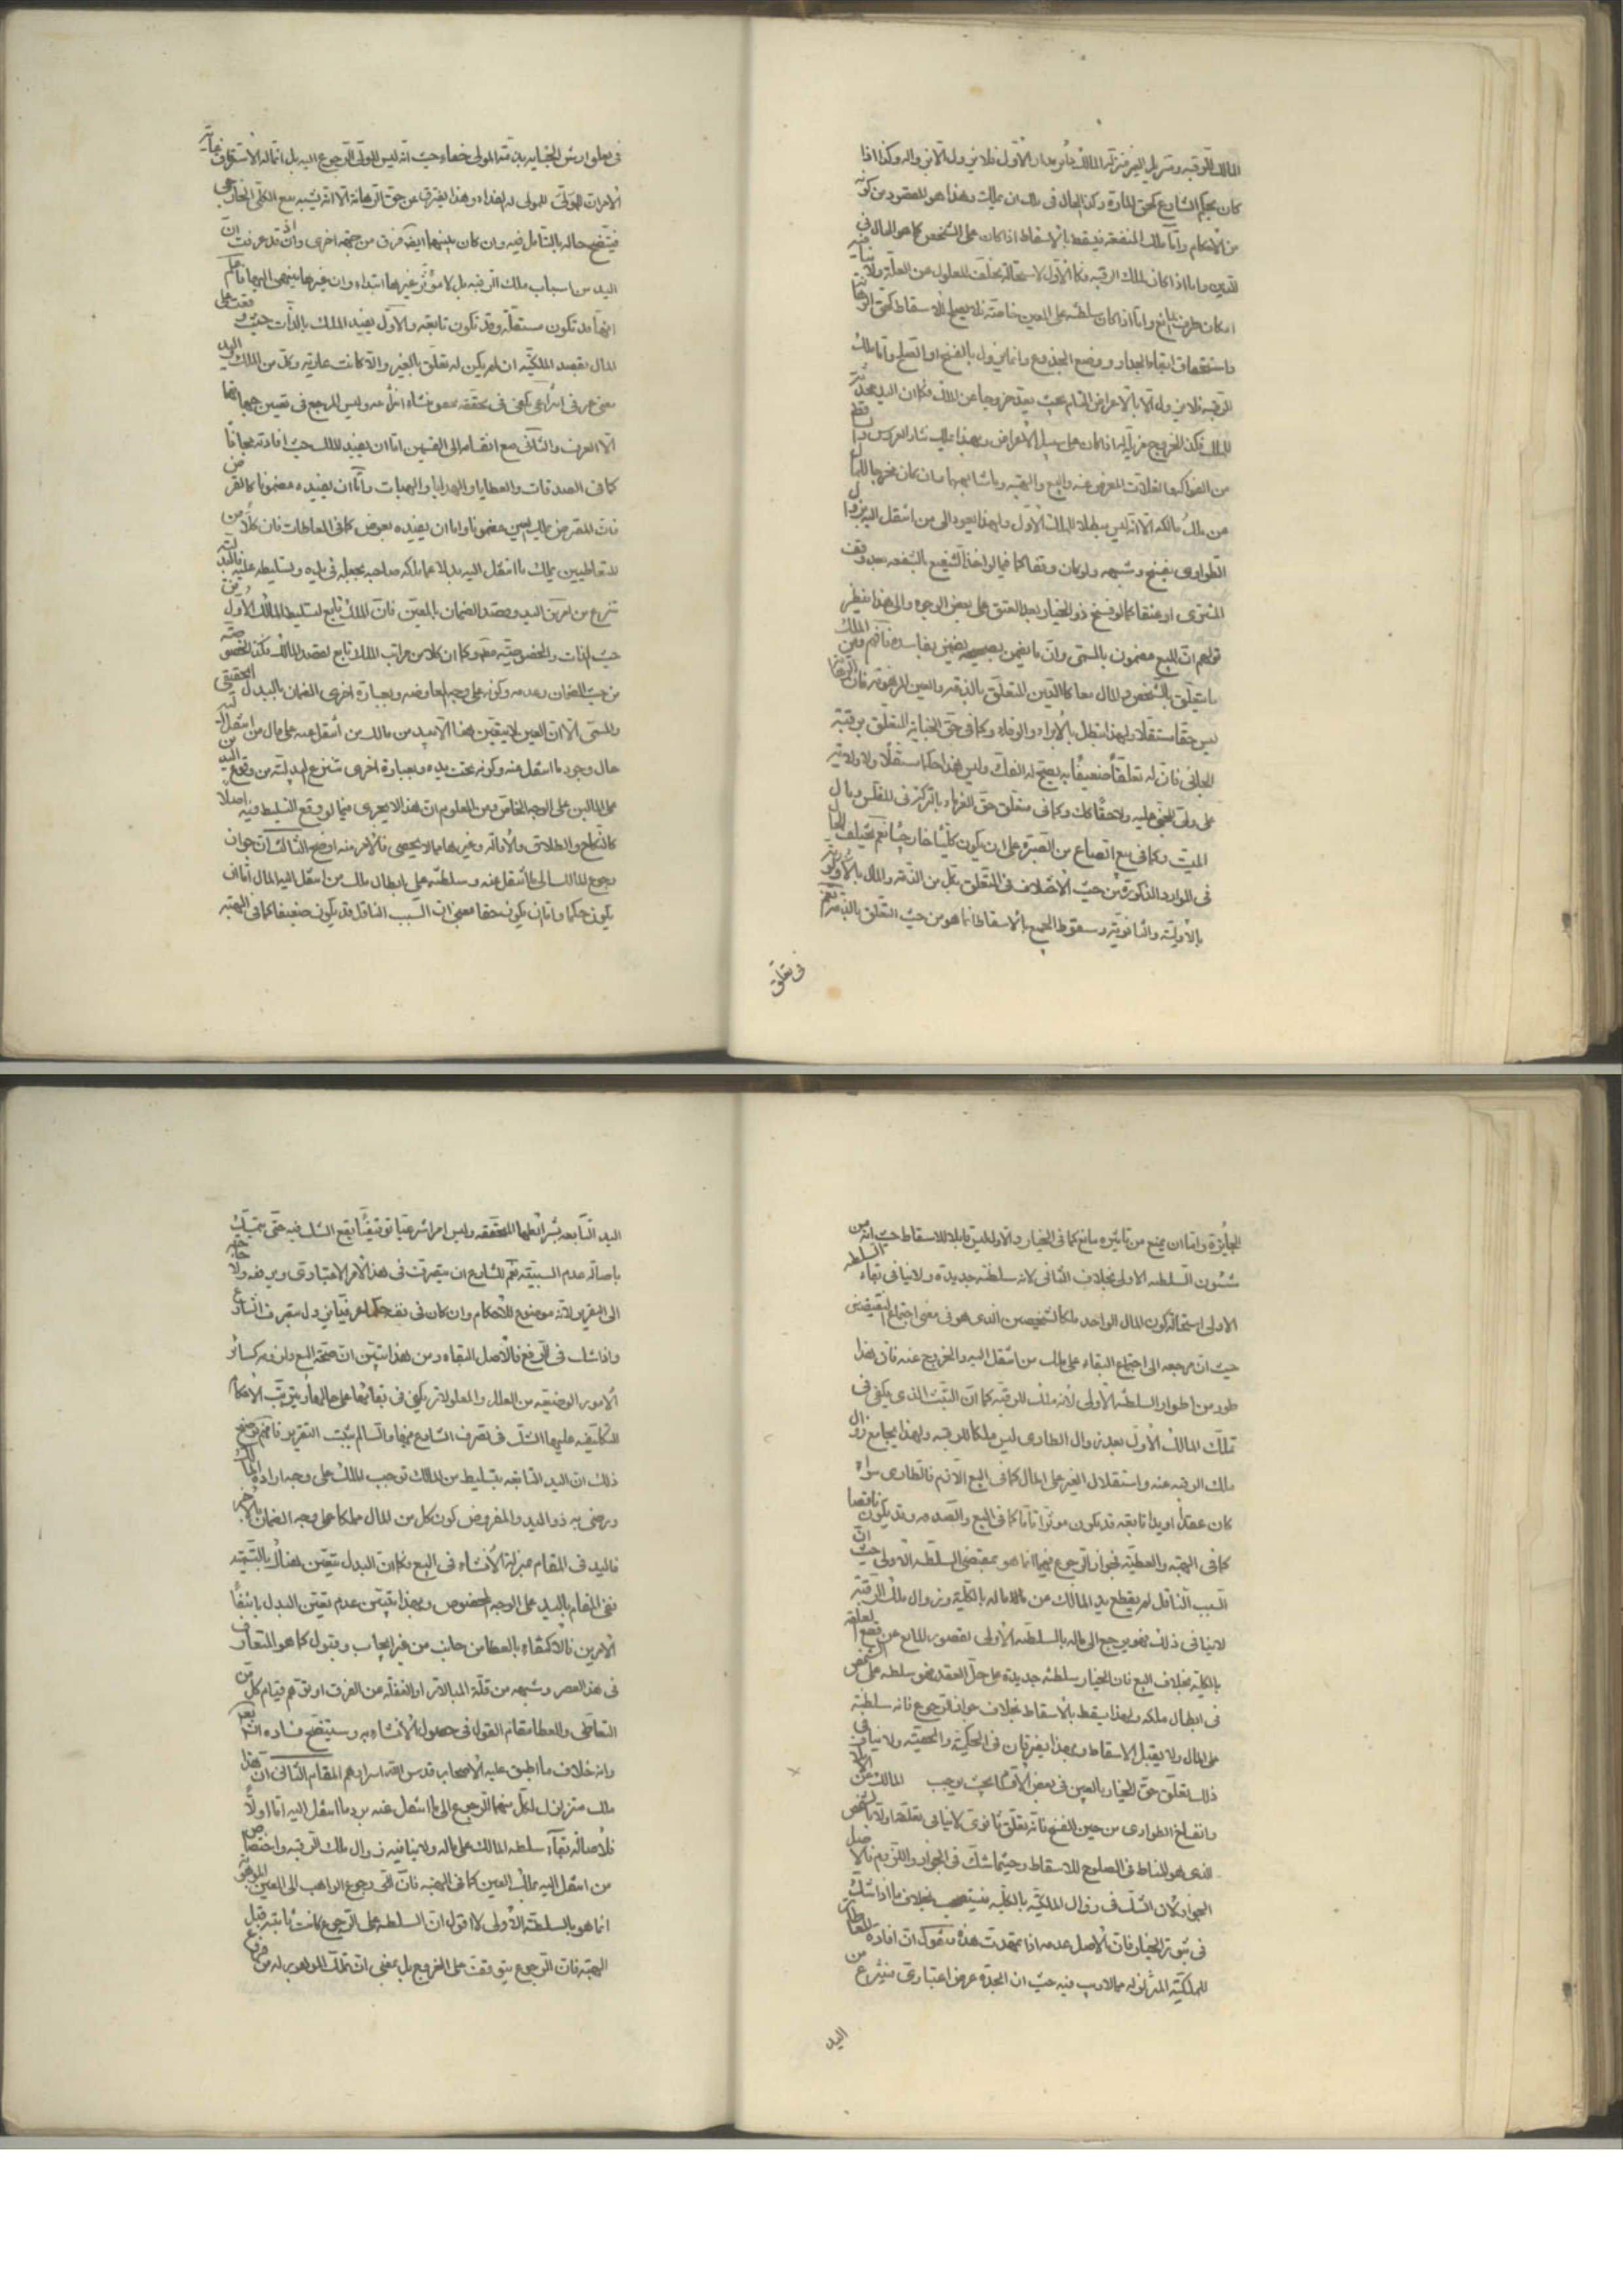 المالك للرقبه وتنزيل الغير منزلة المالك فامر بدار الاول فلا يزول الا بزواله وكذا اذا
كان بحكم الشارع كحق المارة وكذا الحال فى ملك ان يملك وهذا هو المقصود من كونه
من الاحكام واما ملك المنفعه فيسقط بالاسقاط اذا كان على الشخص كما هو الحال فى
الدين واما اذا كان لملك الرقبه فكالاول لاستحالة تخلف المعلول عن العلة ولا
امكان طرف المانع واما اذا كان سلطنه على العين خاصة فلا يصلح للاسقاط كحق
واستحقاق ابقاء الجدار ووضع الجذوع وانما يزول بالفسخ او الصلح واما ملك
الرقبه فلا يزول الا بالاعراض التام بحيث يعد خروجا عن الملك فكما ان اليد
للملك فكذا الخروج مزيل له اذا كان على سبيل الاعراض وبهذا يملك نثار العرس
من الفواكه والغلات المعرض عنه والبيع والهبه وما شابهها وان كان مخرجا للمال
عن ملك مالكه الا انه ليس مبطلا للملك الاول ولهذا يعود الى من انتقل اليه بزوال
الطوارى بفسخ وشبهه ولو كان وقفا كما فيما لو اخذ الشفيع بالشفعه بعد وقف
المشترى او عتقا كما لو فسخ ذو الخيار بعد العتق على بعض الوجوه والى هذا ينظر
قولهم ان المبيع مضمون بالمسمى وان ما يضمن بصحيحه يضمن بفاسده فافهم ومن
ما يتعلق بالشخص والمال معا كالدين المتعلق بالذمه والعين المرهونه فان
ليس حقا مستقلا ولهذا يبطل بالابراء والوفاء وكما فى حق الجنايه المتعلق برقبة
الجانى فان له تعلقا ضعيفا به يصح له الفك وليس هذا حكما مستقلا ولا ولايه
على ولى المجنى عليه ولا حقا كك وكما فى متعلق حق الغرماء بالتركه فى المفلس ومال
الميت وكما فى بيع الصاع من الصبرة على ان يكون كليا خارجيا نعم يختلف الحال
فى الموارد المذكورة من حيث الاختلاف فى التعلق بكل من الذمه والمال بالاولويه
بالاوليه والثانويه وسقوط الجميع بالاسقاط انما هو من حيث التعلق بالذمه نعم
فى تعلق
فى تعلق ارش الجنايه بذمه المولى خفاء حيث انه ليس للولى الرجوع اليه بل انما له الاسترقاق
الا مراد الولى للمولى له الفداء وهذا يفترق عن حق الرهانه الا انه يشبه بيع الكلى الخارجى
فيتضح حاله بالتامل فيه وان كان بينهما ايضا فرق من جهه اخرى واذ قد عرفت ان
اليد من اسباب ملك الرقبه بل لا مؤثر غيرها ابتداء وان غيرها ينتهى اليها فاعلم
انها قد تكون مستقله وقد تكون تابعه والاول يفيد الملك بالذات حيث وقعت على
المال بقصد الملكيه ان لم يكن له تعلق بالغير والا كانت عاريه وكل من الملك واليد
معنى عرفى انتزاعى يكفى فى تحققه حصول منشاء انتزاعه وليس المرجع فى تعيين جهاتهما
الا العرف والثانى مع انقسامه الى القسمين اما ان يفيد الملك حيث افادته مجانا
كما فى الصدقات والعطايا والهدايا والهبات واما ان يفيده مضمونا كالقرض
فان المقترض يملك العين مضمونا واما ان يفيده بعوض كما فى المعاطات فان كلا من
المتعاطيين يملك ما انتقل اليه بدلا عما ملكه صاحبه بجعله فى يده وتسليطه عليه فالبدليه
تنتزع من اليد وقصد الضمان بالمعين فان الملك تابع لتسليط المالك الاول من
حيث الذات والخصوصيه فكما ان كلا من مراتب الملك تابع لقصد المالك فكذا الخصوصيه
من حيث الضمان وعدمه وكونه على وجه المعاوضه وبعبارة اخرى الضمان بالبدل الحقيقى
والمسمى الا ان العين لا يتعين هنا الا بيد من مالك من انتقل عنه على مال من انتقل اليه
حال وجود ما انتقل عنه وكونه تحت يده وبعبارة اخرى تنتزع البدليه من وقوع اليد
على المالين على الوجه الخاص ومن المعلوم ان هذا لا يجرى فيما لو وقع التسليط فيه اصلا
كالنكاح والطلاق والاقاله وغيرها مما لا يحصى فالامر فيه اوضح الثالث ان جواز
رجوع المالك الى ما انتقل عنه وسلطنته على ابطال ملك من انتقل اليه المال اما ان
يكون حكما واما ان يكون حقا بمعنى ان السبب الناقل قد يكون ضعيفا كما فى الهبه
الجايزة واما ان يمنع من تاثيره مانع كما فى الخيار والاول ليس قابلا للاسقاط حيث انه من
شئون السلطنه الاولى بخلاف الثانى لانه سلطنه جديده ولا ينافى بقاء السلطنه
الاولى استحاله كون المال الواحد ملكا لشخصين الذى هو فى معنى اجتماع النقيضين
حيث ان مرجعه الى اجتماع البقاء على ملك من انتقل اليه والخروج عنه فان هذا
طور من اطوار السلطنه الاولى لانه ملك للرقبه كما ان التثبت الذى يكفى فى
تملك المالك الاول بعد زوال الطارى ليس ملكا للرقبه ولهذا يجامع زوال
ملك الرقبه عنه واستقلال الغير على المال كما فى البيع اللازم فالطارى سواء
كان عقدا او يدا تابعه قد يكون موثرا تاما كما فى البيع والصدقه وقد يكون ناقصا
كما فى الهبه والعطيه فجواز الرجوع فيهما انما هو بمقتضى السلطنه الاولى حيث ان
السبب الناقل لم يقطع يد المالك من ماله بالكليه وزوال ملك الرقبه
لا ينافى ذلك فهو يرجع الى ماله بالسلطنه الاولى لقصور المانع عن قطع تعلقه
بالكليه بخلاف البيع فان الخيار سلطنه جديده على حل العقد فهو سلطنه على الشخص
فى ابطال ملكه ولهذا يسقط بالاسقاط بخلاف جواز الرجوع فانه سلطنه
على المال ولا يقبل الاسقاط وبهذا يفترقان فى الحكميه والحقيه ولا ينافى
ذلك تعلق حق الخيار بالعين فى بعض الاقسام بحيث يوجب المالك من
وانفساخ الطوارى من حين الفسخ فانه تعلق ثانوى لا ينافى تعلقه اولا بالشخص
الذى هو المناط فى الصلوح للاسقاط وحيثما شك فى الجواز واللزوم فالاصل
الجواز لان الشك فى زوال الملكيه بالكليه فيستصحب بخلاف ما اذا شك
فى ثبوت الخيار فان الاصل عدمه اذا تمهدت هذه فنقول ان افادة المعاطات
للملكيه المتزلزله مما لا ريب فيه حيث ان الجدة عرض اعتبارى ينتزع من
اليد
اليد التابعه بشرائطها المحققه وليس امرا شرعيا توقيفيا يقع الشك فيه حتى يتمسك
باصاله عدم السببيه نعم للشارع ان يتصرف فى هذا الامر الاعتبارى ويرفعه ولا حاجه
الى التقرير لانه موضوع للاحكام وان كان فى نفسه حكما عرفيا يزول بتصرف الشارع
واذا شك فى الرفع فالاصل البقاء ومن هذا يتبين ان صحة البيع ولزومه كسائر
الامور الوضعيه من العلل والمعلولات يكفى فى بقائها على حالها وترتب الاحكام
التكليفيه عليها الشك فى تصرف الشارع فيها وان لم يثبت التقرير فافهم توضيح
ذلك ان اليد التابعه بتسليط من المالك توجب الملك على وجه اراده المالك
ورضى به ذو اليد والمفروض كون كل من المال مملكا على وجه الضمان بالاخر
فاليد فى المقام بمنزلة الانشاء فى البيع فكما ان البدل يتعين هناك بالتسميه
ففى المقام باليد على الوجه المخصوص وبهذا يتبين عدم تعين البدل بانتفاء
الامرين فالاكتفاء بالعطا من جانب من غير ايجاب وقبول كما هو المتعارف
فى هذا العصر وشبهه من قلة المبالات او الغفله عن الفرق او توهم قيام كل من
التعاطى والعطا مقام القول فى حصول الانشاء به وستيضح فساده
وانه خلاف ما اطبق عليه الاصحاب قدس الله اسرارهم المقام الثانى ان هذا
ملك متزلزل لكل منهما الرجوع الى ما انتقل عنه برد ما انتقل اليه اما اولا
فلاصاله بقاء سلطنه المالك على ماله ولا ينافيه زوال ملك الرقبه واختصاص
من انتقل اليه بملك العين كما فى الهبه فان رجوع الواهب الى العين الموهوبه
انما هو بالسلطنه الاولى لا اقول ان السلطنه على الرجوع كانت ثابته قبل
الهبه فان الرجوع يتوقف على الخروج بل بمعنى ان تملك الموهوب له من فروع